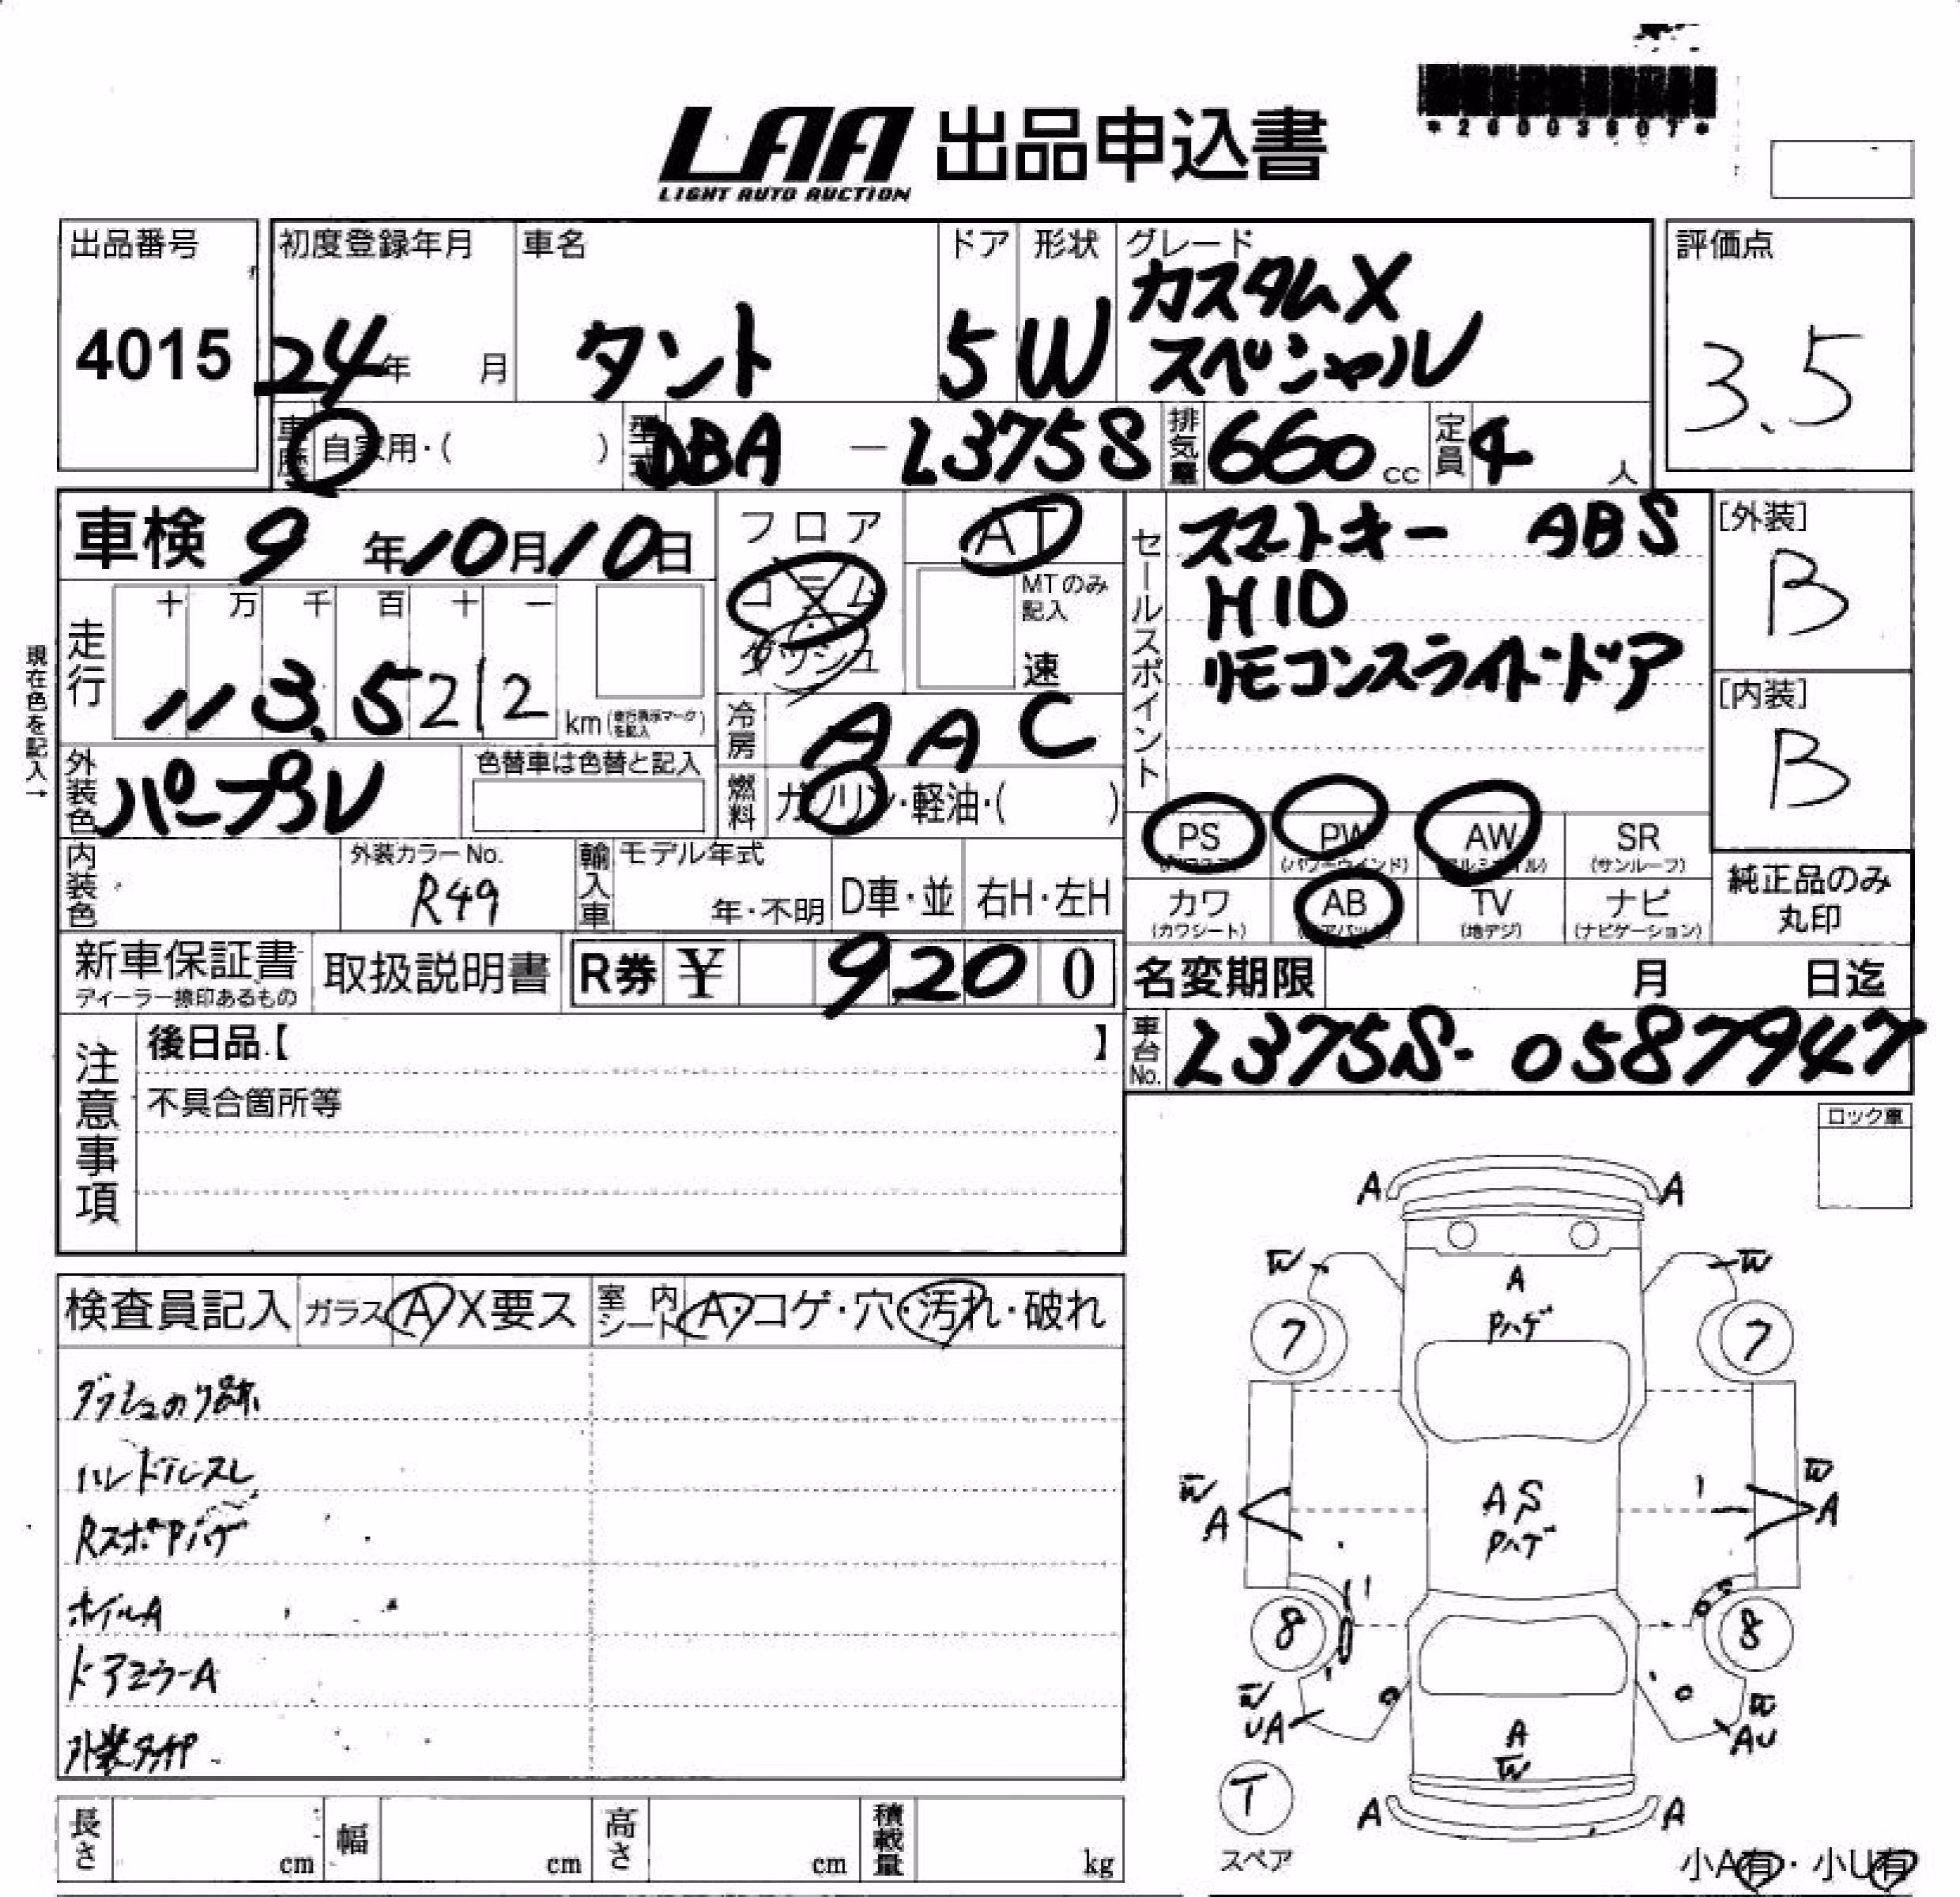 *26003607*
LAA 出品申込書
LIGHT AUTO AUCTION
出品番号
4015
初度登録年月
24年 月
車名
タント
ドア
5
形状
W
グレード
カスタムX
スペシャル
評価点
3.5
車歴 自家用・( )
型式 DBA - L375S
排気量 660cc
定員 4人
車検 9年10月10日
フロア
コラム
ダッシュ
AT
MTのみ記入
速
セールスポイント
スマートキー ABS
HID
リモコンスライドドア
[外装]
B
[内装]
B
現在色を記入→
走行
十 万 千 百 十 一
113,5212 km
冷房 AAC
燃料 ガソリン・軽油・( )
外装色 パープル
色替車は色替と記入
PS
PW (パワーウインド)
AW
SR (サンルーフ)
カワ (カワシート)
AB
TV (地デジ)
ナビ (ナビゲーション)
純正品のみ
丸印
内装色
外装カラーNo.
R49
輸入車
モデル年式
年・不明
D車・並
右H・左H
新車保証書
ディーラー捺印あるもの
取扱説明書
R券 ¥ 920 0
名変期限 月 日迄
車台No. L375S-0587947
注意事項
後日品【 】
不具合箇所等
ロック車
検査員記入
ガラス A X要ス
室内シート A・コゲ・穴・汚れ・破れ
ダッシュのり跡
ハンドルスレ
RスポPハゲ
ホイルA
ドアミラーA
A A
W W
A
Pハゲ
7 7
W W
A A
A S
Pハゲ
8 8
W W
UA AU
A
W
T
スペア
A A
小A有・小U有
長さ cm
幅 cm
高さ cm
積載量 kg